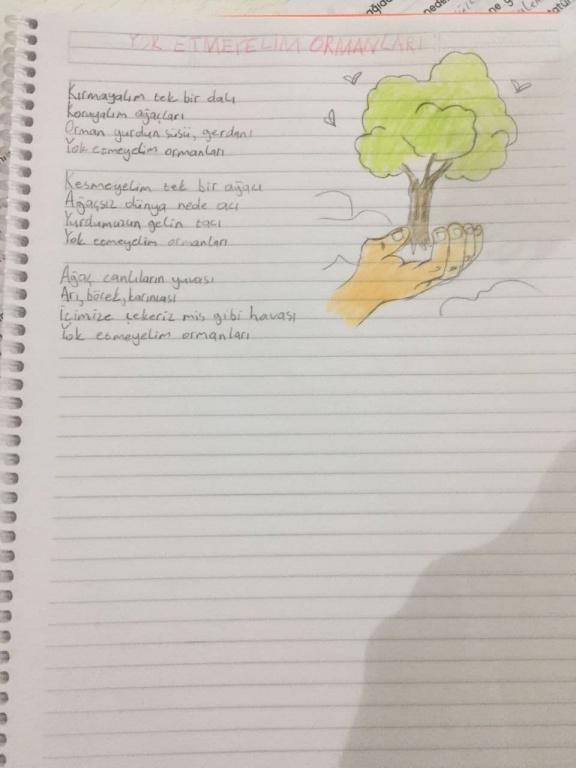 YOK ETMEYELİM ORMANLARI
Kırmayalım tek bir dalı
Koruyalım ağaçları
Orman yurdun süsü, gerdanı
Yok etmeyelim ormanları
Kesmeyelim tek bir ağacı
Ağaçsız dünya nede acı
Yurdumuzun gelin tacı
Yok etmeyelim ormanları
Ağaç canlıların yuvası
Arı, böcek, karıncası
İçimize çekeriz mis gibi havası
Yok etmeyelim ormanları